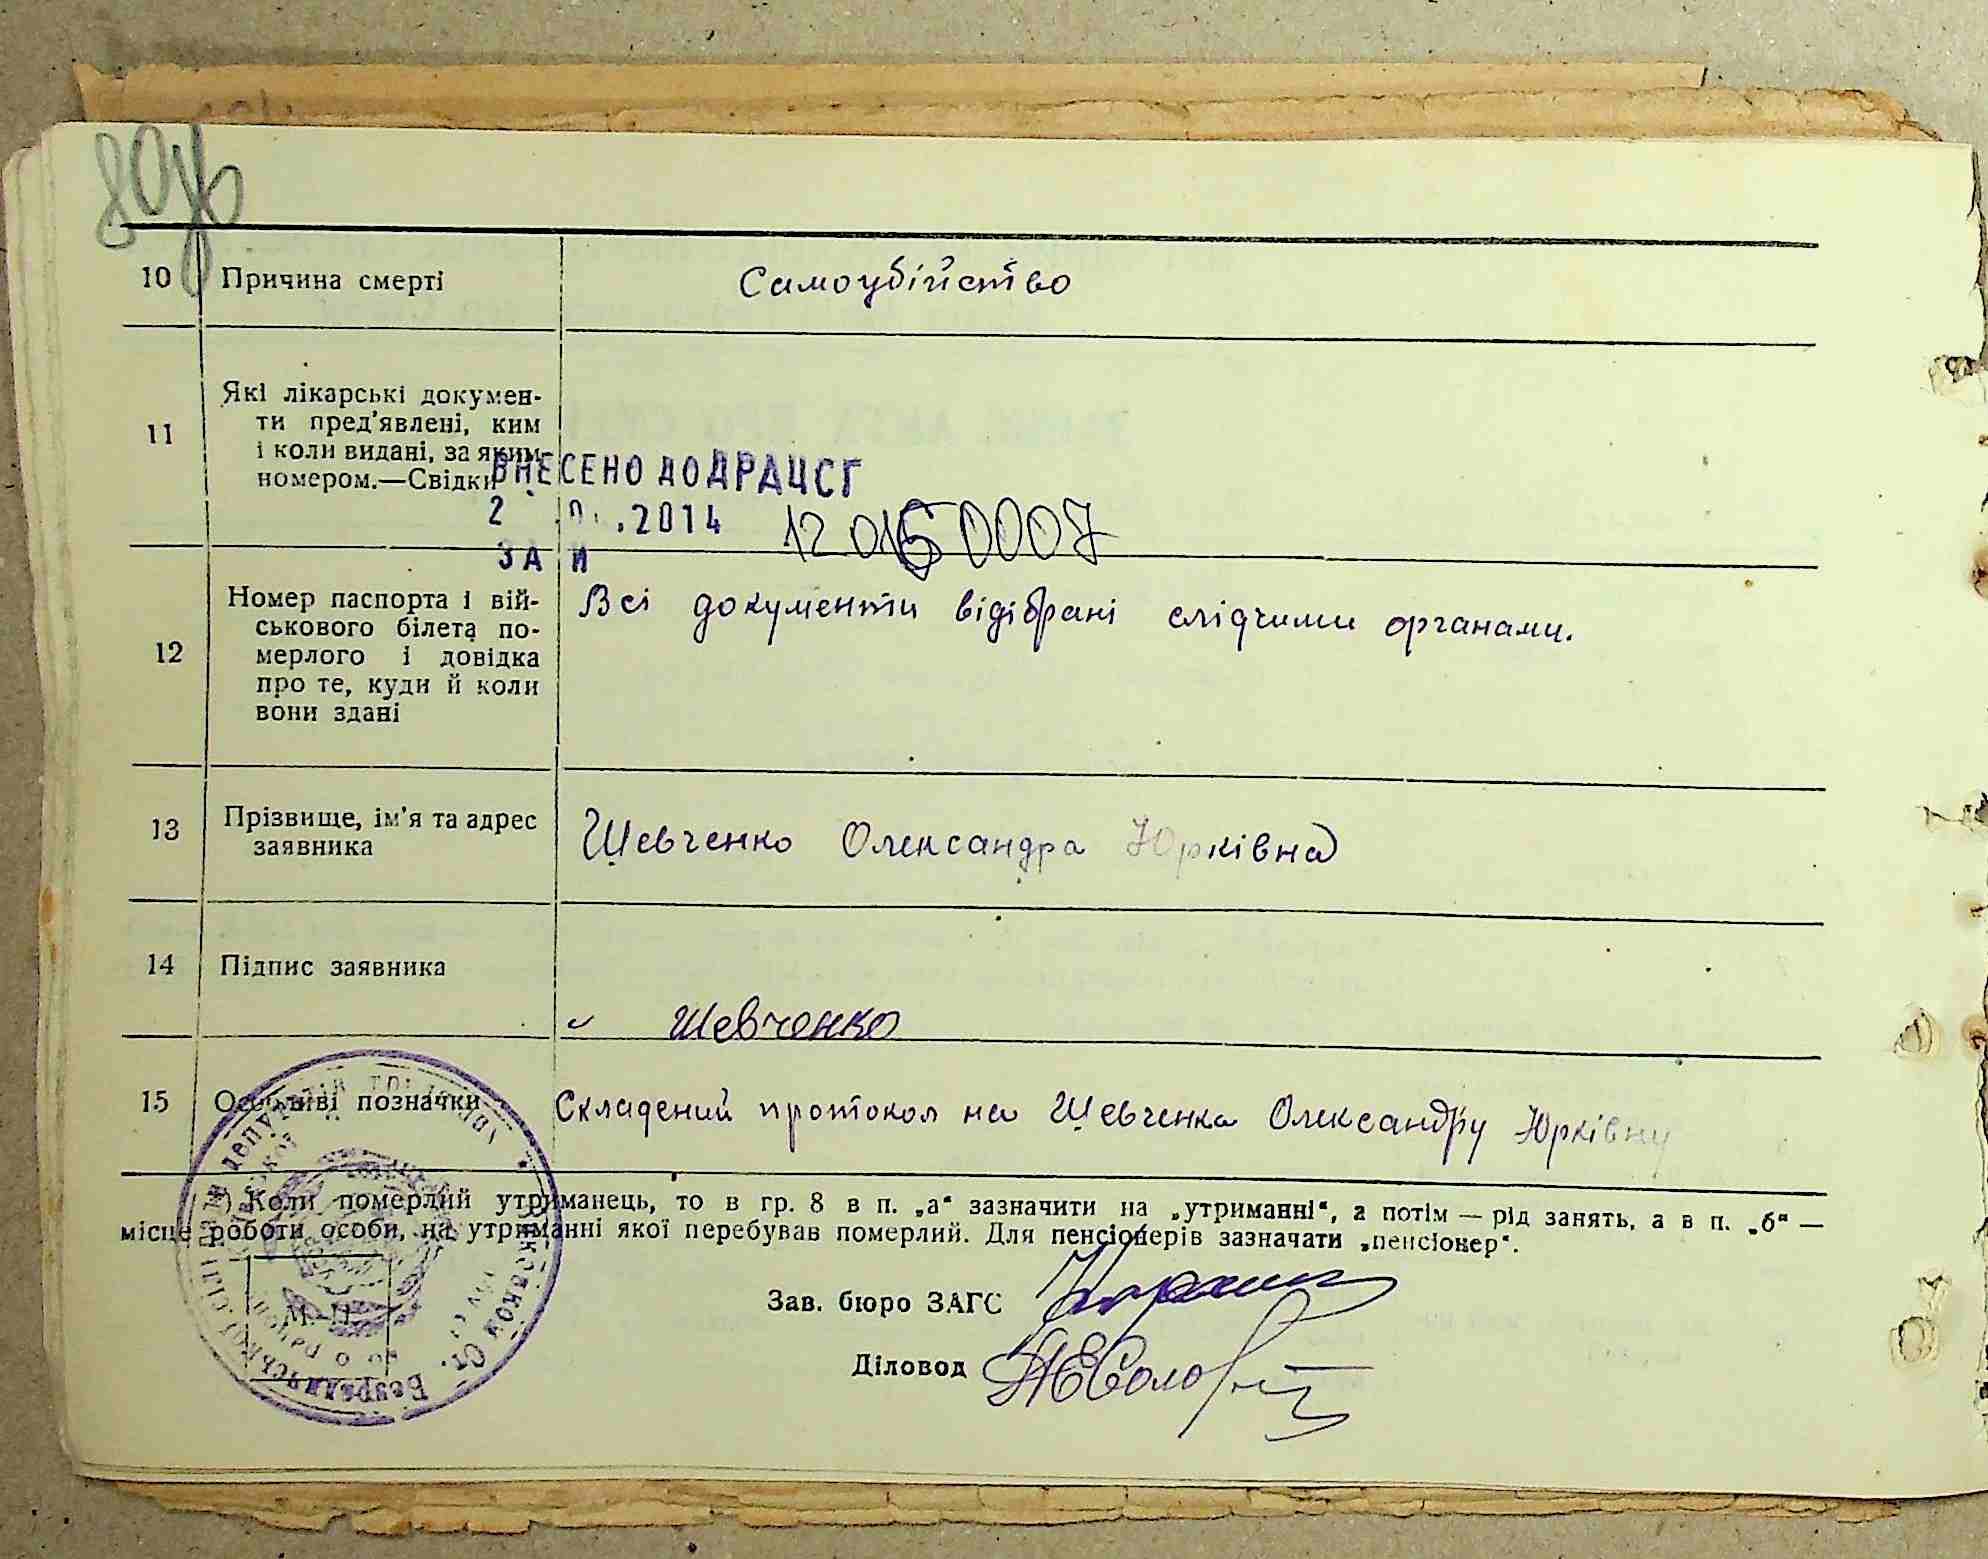 10 Причина смерті Самоубійство
11 Які лікарські докумен-
ти пред'явлені, ким
і коли видані, за яким
номером.—Свідки
ВНЕСЕНО ДО ДРАЦСГ
2 .0 .2014 120150007
ЗА И
12 Номер паспорта і вій-
ськового білета по-
мерлого і довідка
про те, куди й коли
вони здані
Всі документи відібрані слідчими органами.
13 Прізвище, ім'я та адрес
заявника
Шевченко Олександра Юрківна
14 Підпис заявника
Шевченко
15 Особливі позначки Складений протокол на Шевченка Олександру Юрківну
*) Коли померлий утриманець, то в гр. 8 в п. „а“ зазначити на „утриманні“, а потім — рід занять, а в п. „б“ —
місце роботи особи, на утриманні якої перебував померлий. Для пенсіонерів зазначати „пенсіонер“.
Зав. бюро ЗАГС
Діловод
М. П.